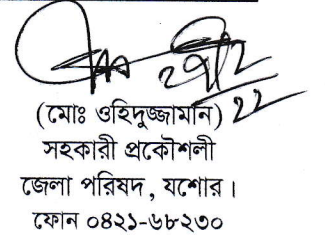 (মোঃ ওহিদুজ্জামান)
সহকারী প্রকৌশলী
জেলা পরিষদ, যশোর।
ফোন ০৪২১-৬৮২৩০